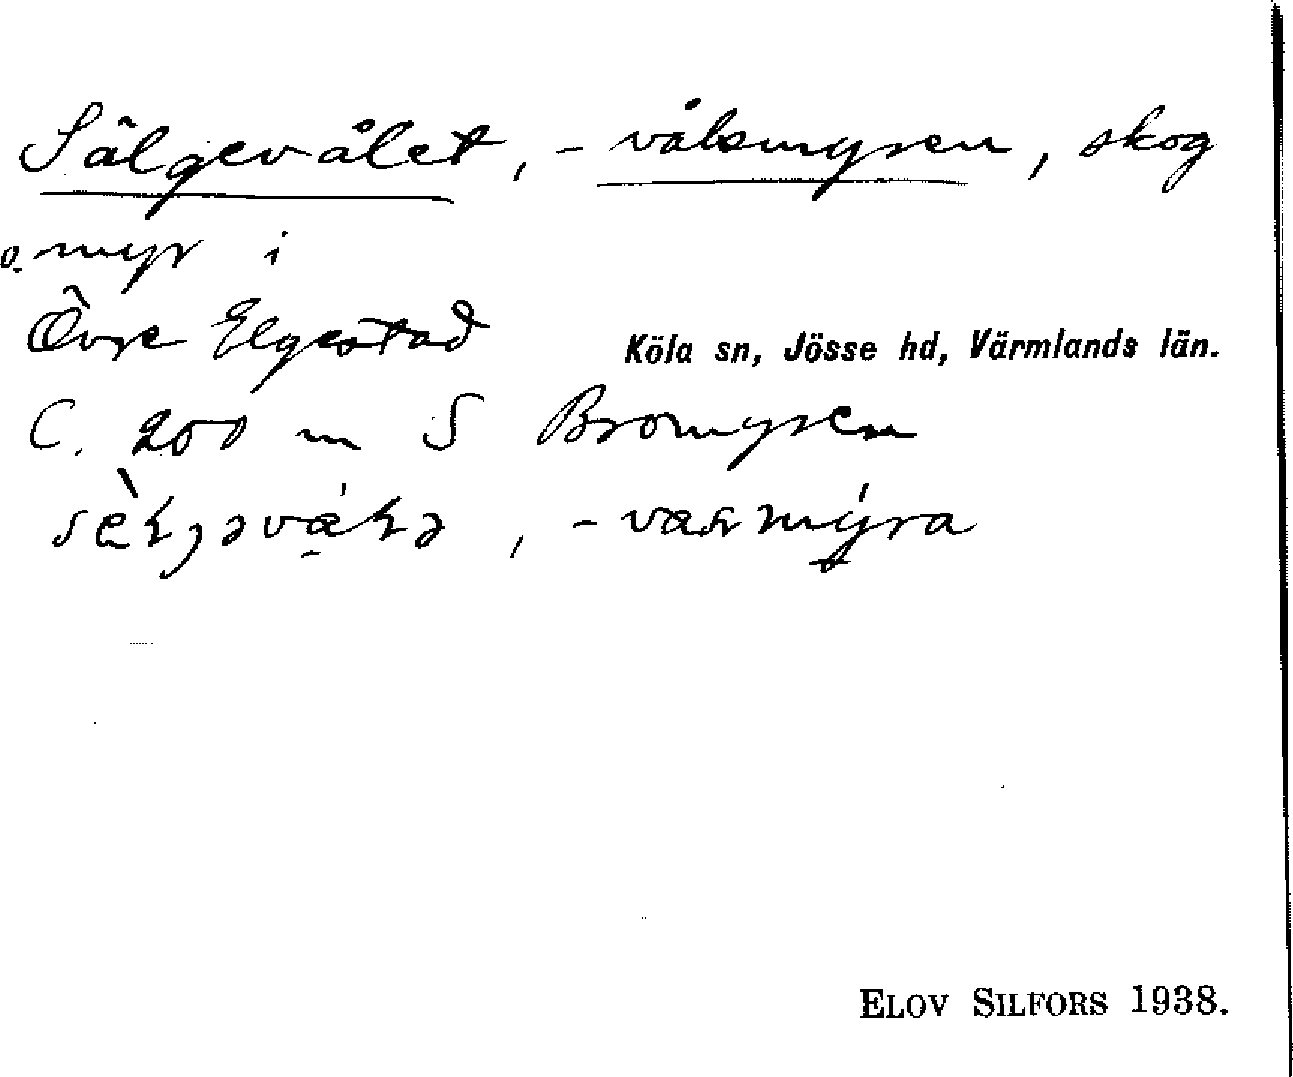 Sälgevålet, -vålsmyren, skog
o. myr i
Övre Elgestad Köla sn, Jösse hd, Värmlands län.
C. 200 m S Bromyren
ELOV SILFORS 1938.